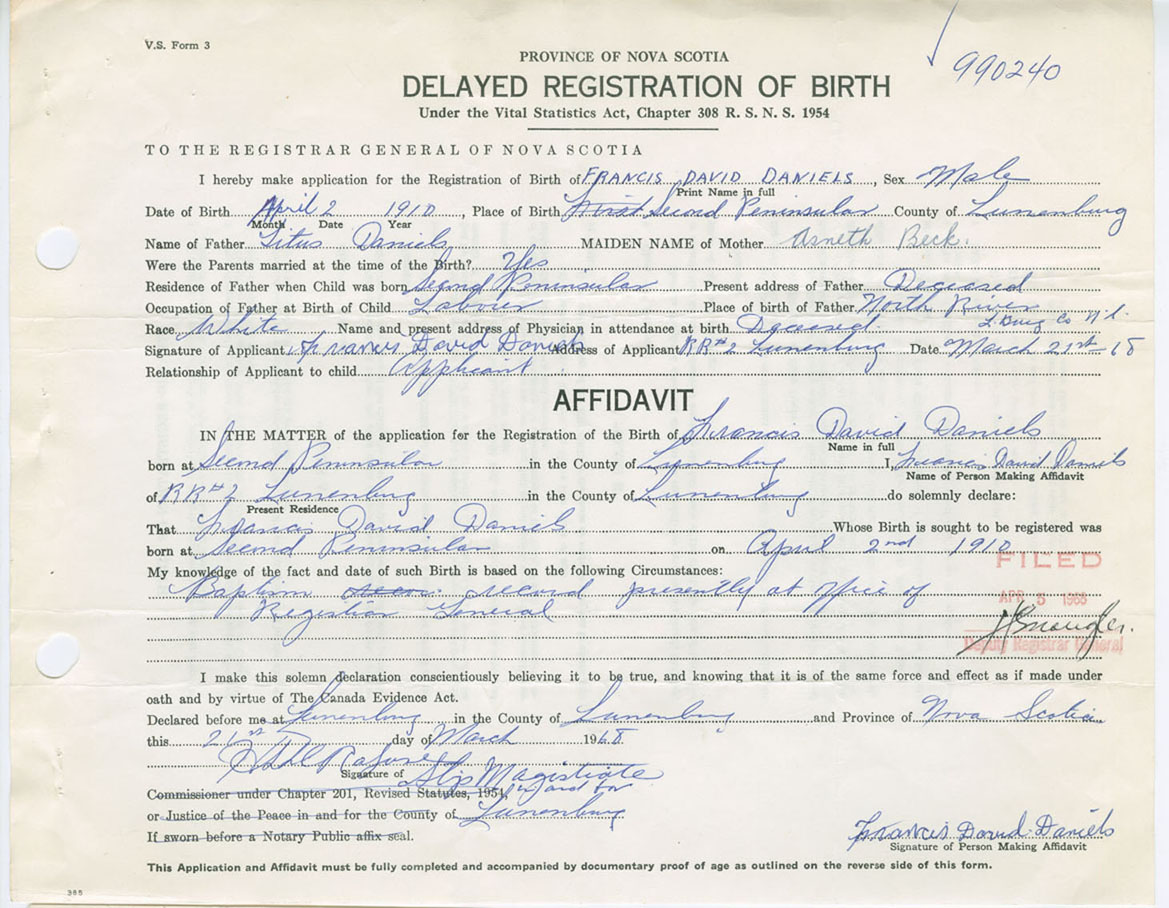 V.S. Form 3
990240
PROVINCE OF NOVA SCOTIA
DELAYED REGISTRATION OF BIRTH
Under the Vital Statistics Act, Chapter 308 R. S. N. S. 1954
TO THE REGISTRAR GENERAL OF NOVA SCOTIA
I hereby make application for the Registration of Birth of FRANCIS DAVID DANIELS, Sex Male
Print Name in full
Date of Birth April 2 1910, Place of Birth Second Peninsular County of Lunenburg
Month Date Year
Name of Father Titus Daniels MAIDEN NAME of Mother Asneth Beck.
Were the Parents married at the time of the Birth? Yes
Residence of Father when Child was born Second Peninsular Present address of Father Deceased
Occupation of Father at Birth of Child Labourer Place of birth of Father North River
Race White Name and present address of Physician in attendance at birth Deceased. L. Burg Co N.S.
Signature of Applicant Francis David Daniels Address of Applicant RR#2 Lunenburg Date March 21st 68
Relationship of Applicant to child Applicant
AFFIDAVIT
IN THE MATTER of the application for the Registration of the Birth of Francis David Daniels
Name in full
born at Second Peninsular in the County of Lunenburg I, Francis David Daniels
Name of Person Making Affidavit
of RR#2 Lunenburg in the County of Lunenburg do solemnly declare:
Present Residence
That Francis David Daniels Whose Birth is sought to be registered was
born at Second Peninsular on April 2nd 1910
FILED
My knowledge of the fact and date of such Birth is based on the following Circumstances:
Baptism record presently at office of
APR 5 1968
Registrar General
Deputy Registrar General
I make this solemn declaration conscientiously believing it to be true, and knowing that it is of the same force and effect as if made under
oath and by virtue of The Canada Evidence Act.
Declared before me at Lunenburg in the County of Lunenburg and Province of Nova Scotia
this 21st day of March 1968
Signature of Stip Magistrate
Commissioner under Chapter 201, Revised Statutes, 1954, in and for
or Justice of the Peace in and for the County of Lunenburg
If sworn before a Notary Public affix seal.
Francis David Daniels
Signature of Person Making Affidavit
This Application and Affidavit must be fully completed and accompanied by documentary proof of age as outlined on the reverse side of this form.
385